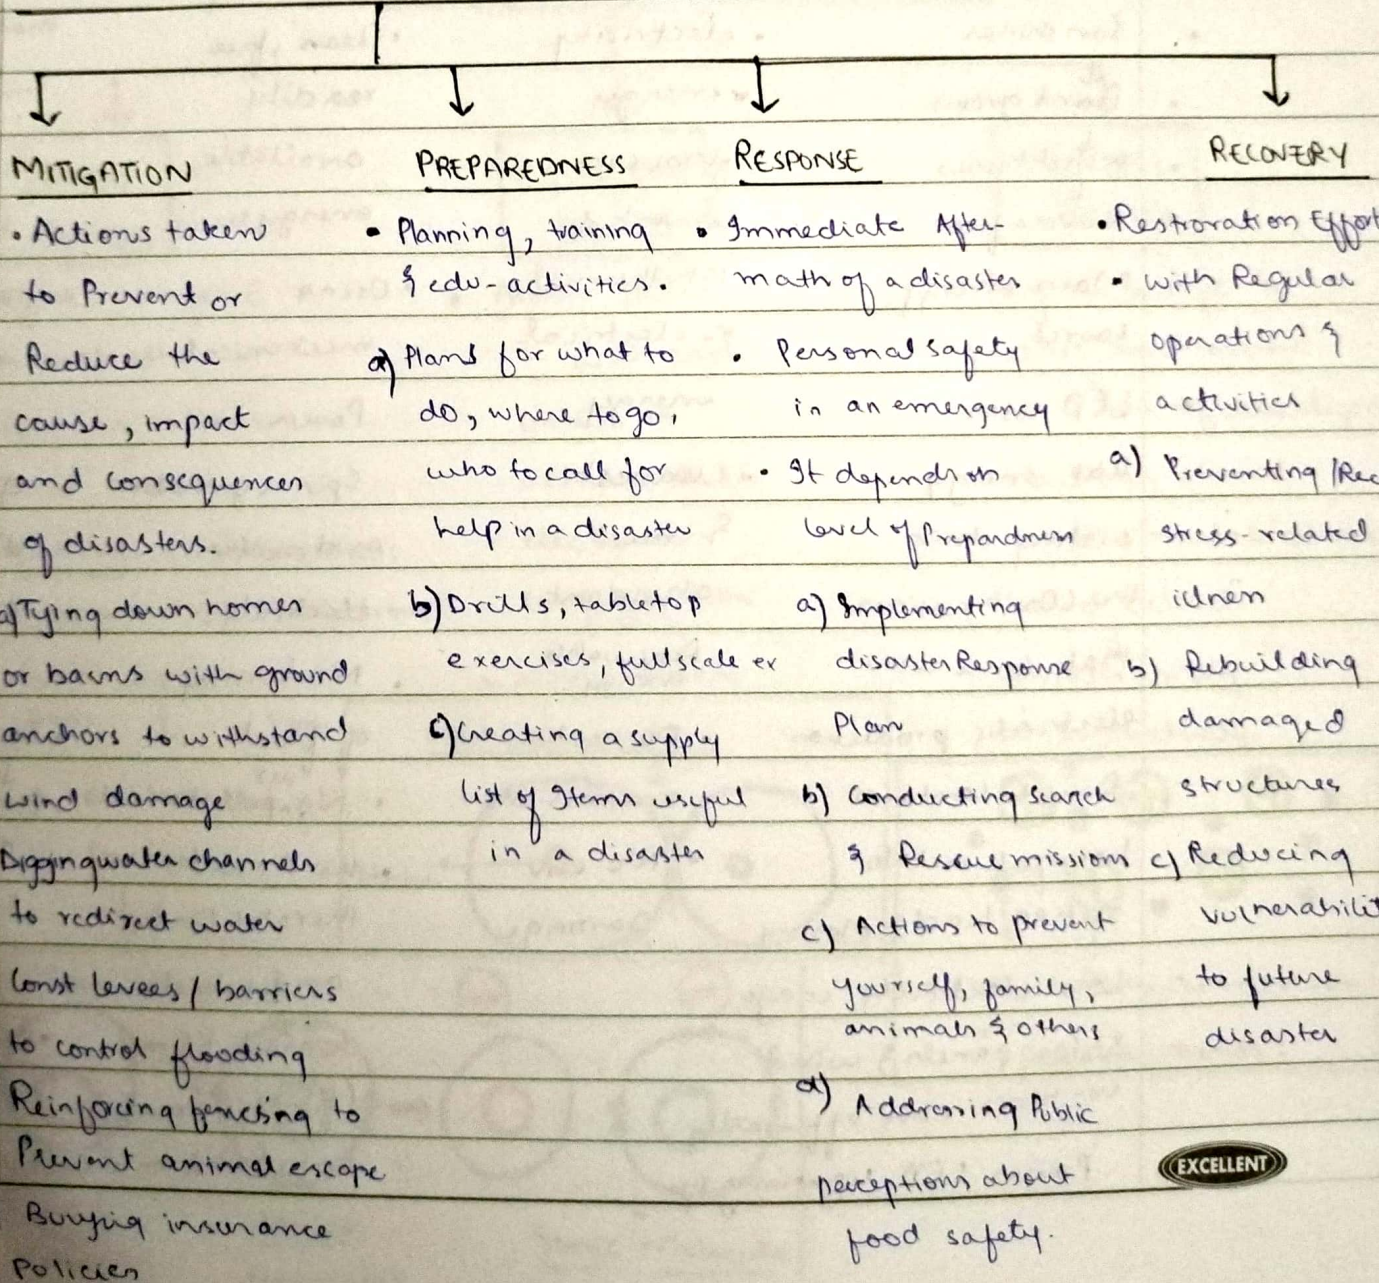 MITIGATION
• Actions taken
to Prevent or
Reduce the
cause, impact
and consequences
of disasters.
a) Tying down homes
or barns with ground
anchors to withstand
wind damage
Digging water channels
to redirect water
Const levees / barriers
to control flooding
Reinforcing fencing to
Prevent animal escape
Buying insurance
Policies
PREPAREDNESS
• Planning, training
& edu-activities.
a) Plans for what to
do, where to go,
who to call for
help in a disaster
b) Drills, tabletop
exercises, full scale ex
c) Creating a supply
list of Items useful
in a disaster
RESPONSE
• Immediate After-
math of a disaster
• Personal safety
in an emergency
• It depends on
level of Prepardness
a) Implementing
disaster Response
Plan
b) Conducting Search
& Rescue missions
c) Actions to prevent
yourself, family,
animals & others
d) Addressing Public
perceptions about
food safety.
RECOVERY
• Restroration Effort
• with Regular
operations &
activities
a) Preventing /Rec
stress-related
illness
b) Rebuilding
damaged
structures
c) Reducing
vulnerabilit
to future
disaster
EXCELLENT